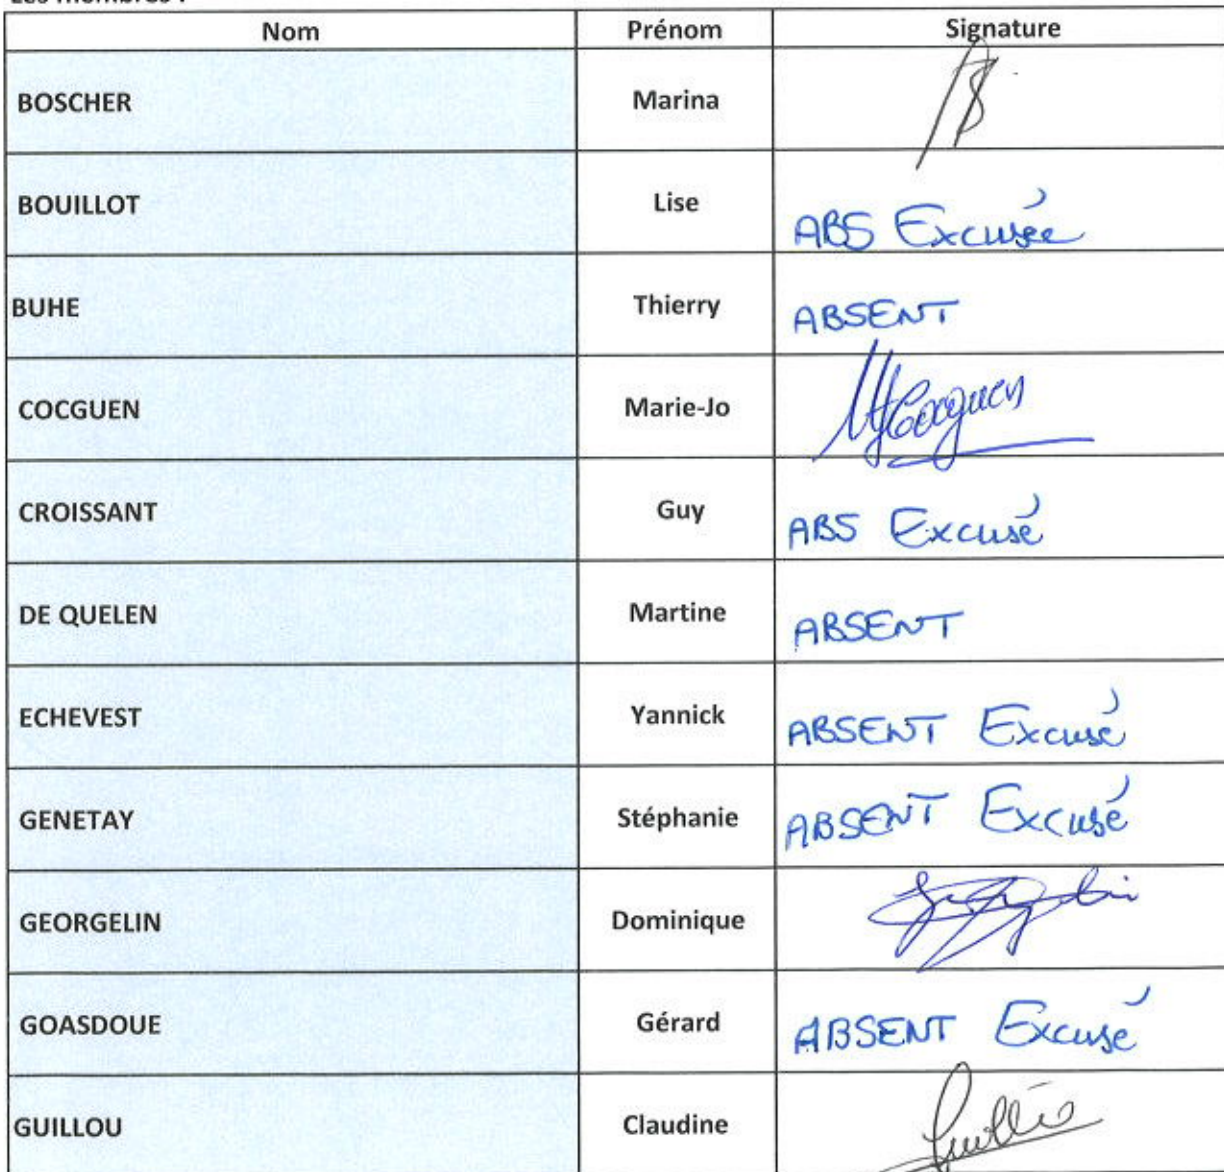 Nom Prénom Signature
BOSCHER Marina
BOUILLOT Lise ABS Excusée
BUHE Thierry ABSENT
COCGUEN Marie-Jo MJCocguen
CROISSANT Guy ABS Excusé
DE QUELEN Martine ABSENT
ECHEVEST Yannick ABSENT Excusé
GENETAY Stéphanie ABSENT Excusé
GEORGELIN Dominique
GOASDOUE Gérard ABSENT Excusé
GUILLOU Claudine